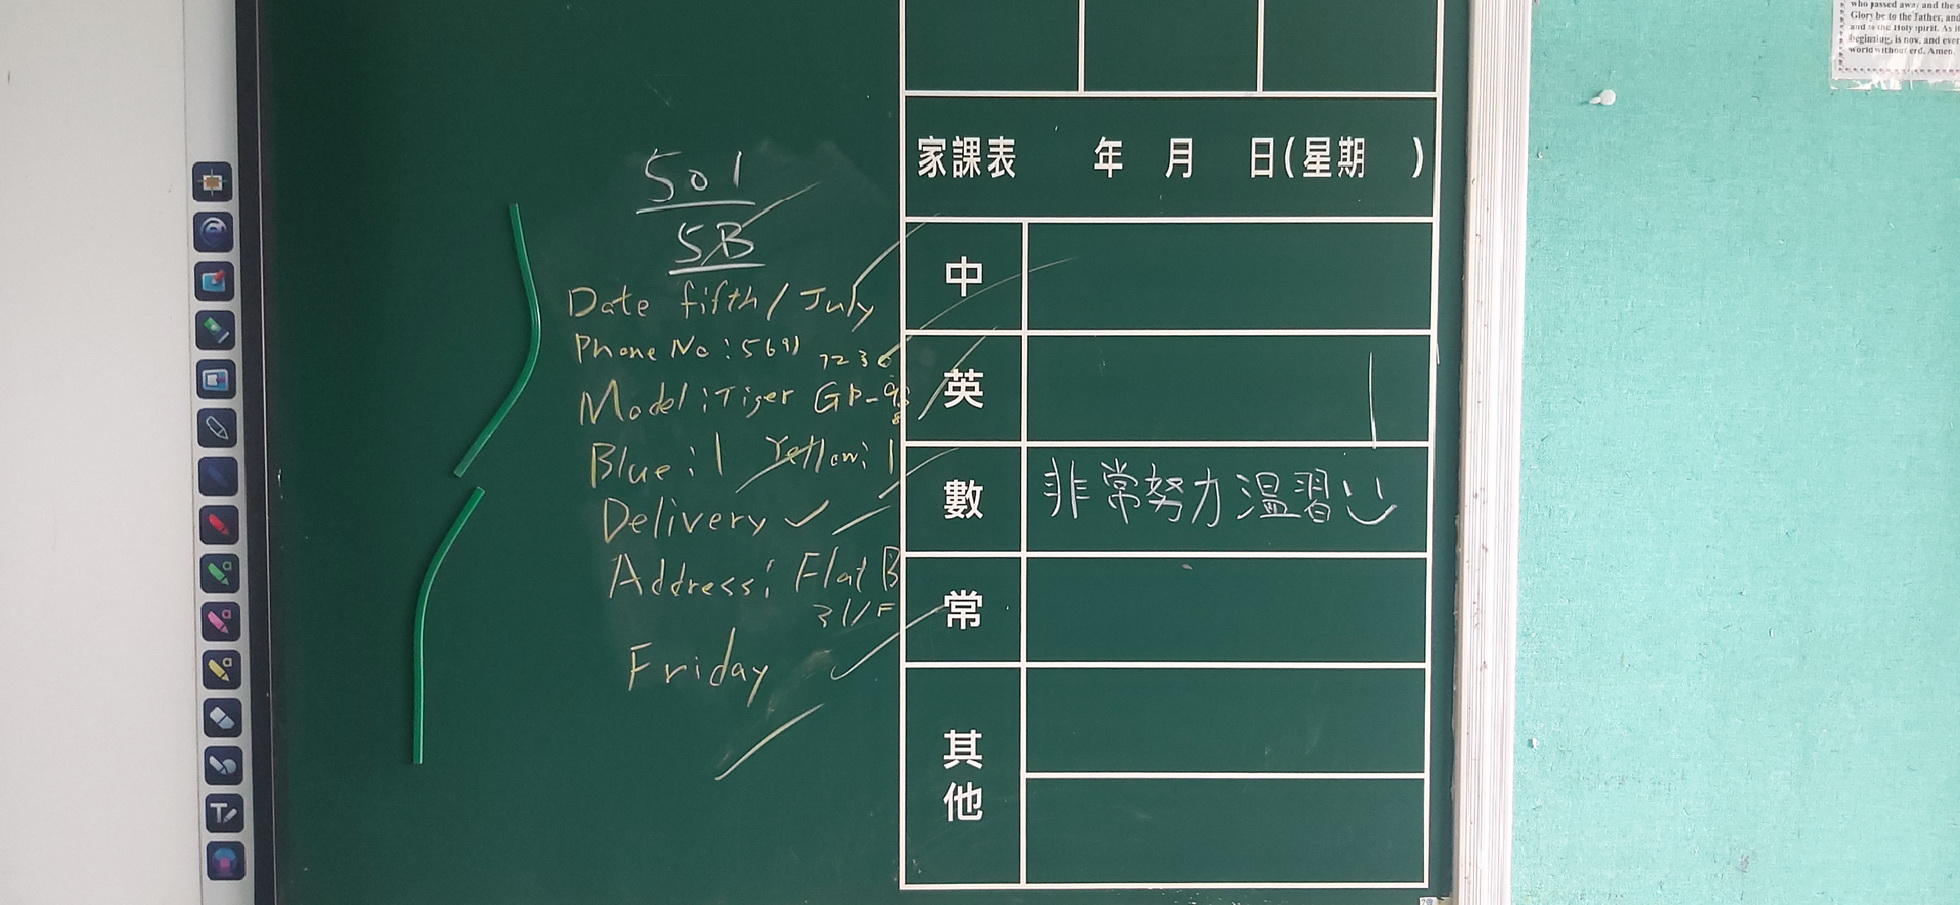 who passed away and the s
Glory be to the Father, and
and to the Holy Spirit. As it
beginning, is now, and ever
world without end. Amen.
501
5B
Date fifth / July
Phone No : 5691 7236
Model : Tiger GP-98
8
Blue : 1 Yellow : 1
Delivery ✓
Address : Flat B
31/F
Friday
家課表 年 月 日(星期 )
中
英
數 非常努力溫習
常
其他